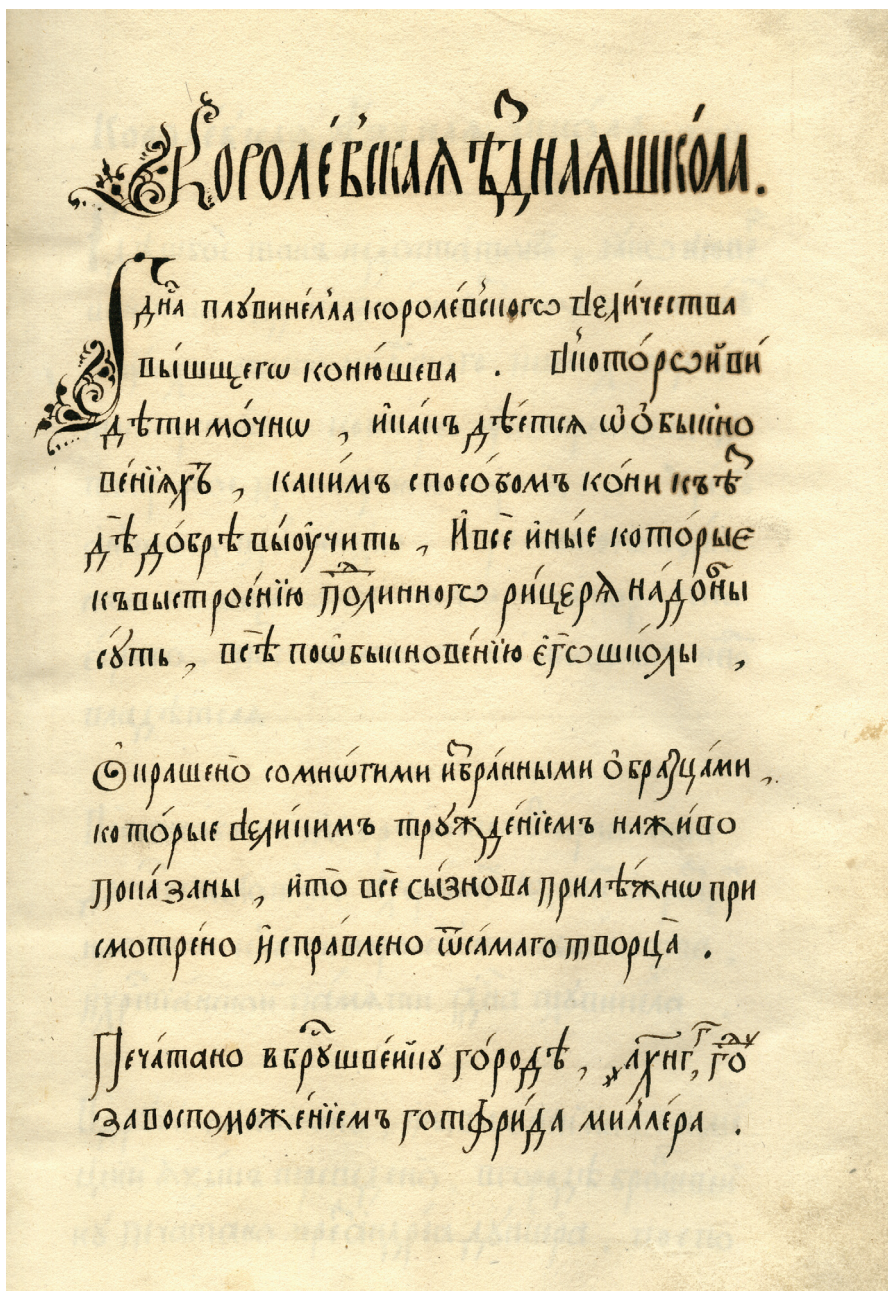 Королéвская ѣзднаѧ шкóла.
Iдна плꙋвинéлла королéвскогѡ величества
вы́шщегѡ коню́шева . в которѡй ви́
дѣти мо́чнѡ , и какъ дѣ́ется ѡ ѻбыкно
ве́нїяхъ , каки́мъ способомъ ко́ни къ ѣз
дѣ до́брѣ вы́оучить , И всѐ и́ны́е кото́рые
къ выстрое́нїю подлинногѡ ры́церѧ на́добны
сꙋ́ть , всѣ по ѡбыкнове́нїю егѡ̀ шко́лы ,
Ѻкрашено̀ со мнѡ́гими и́збра́нными ѻбразца́ми ,
кото́рые вели́кимъ трꙋжде́нїемъ на жи́во
пока́заны , и то̀ всѐ сы́знова прилѣ́жнѡ при
смотре́но и́ спра́влено ѿ са́маго творца̀ .
Печа́тано в брꙋ́ншве́йкꙋ го́родѣ , ҂аха́кг г, гоⷣꙋ
За воспоможе́нїемъ готфри́да ми́ллера .